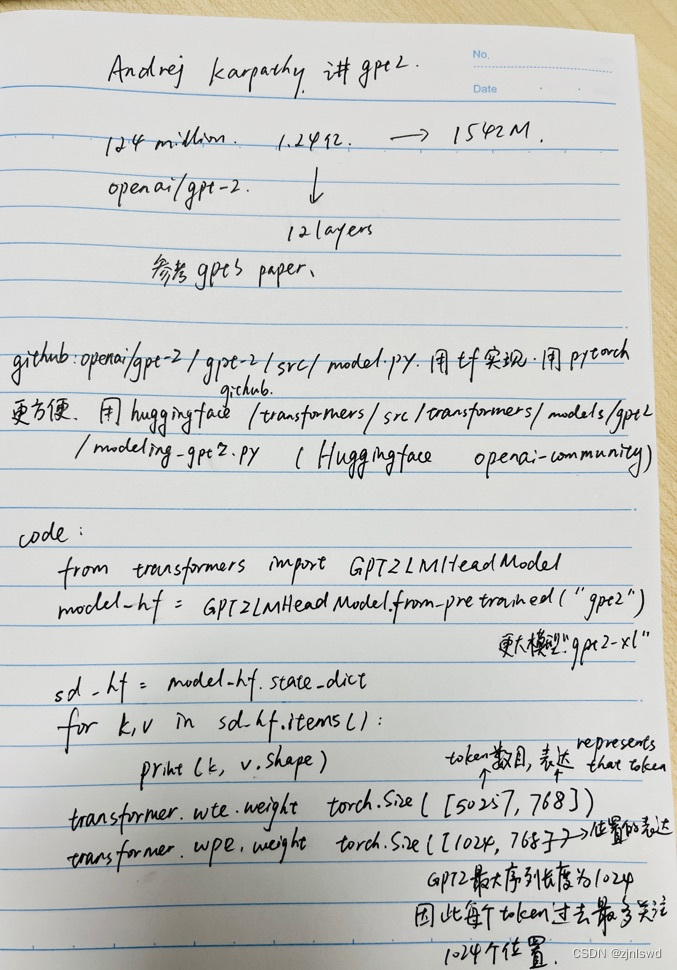 No.
Andrej Karpathy 讲gpt2.
Date
124 million. 1.24亿. → 1542M.
openai/gpt-2. ↓
12 layers
参考 gpt3 paper、
github:openai/gpt-2/gpt-2/src/model.py. 用tf实现.用pytorch
github.
更方便. 用 huggingface /transformers/src/transformers/models/gpt2
/modeling-gpt2.py (Huggingface openai-community)
code:
from transformers import GPT2LMHeadModel
model_hf = GPT2LMHeadModel.from_pretrained("gpt2")
更大模型"gpt2-xl"
sd_hf = model_hf.state_dict
for k,v in sd_hf.items():
print(k, v.shape)
token数目,表达 represents that token
transformer.wte.weight torch.Size([50257, 768])
transformer.wpe.weight torch.Size([1024, 768]) → 位置的表达
GPT2最大序列长度为1024
因此每个token过去最多关注
1024个位置.
CSDN @zjnlswd